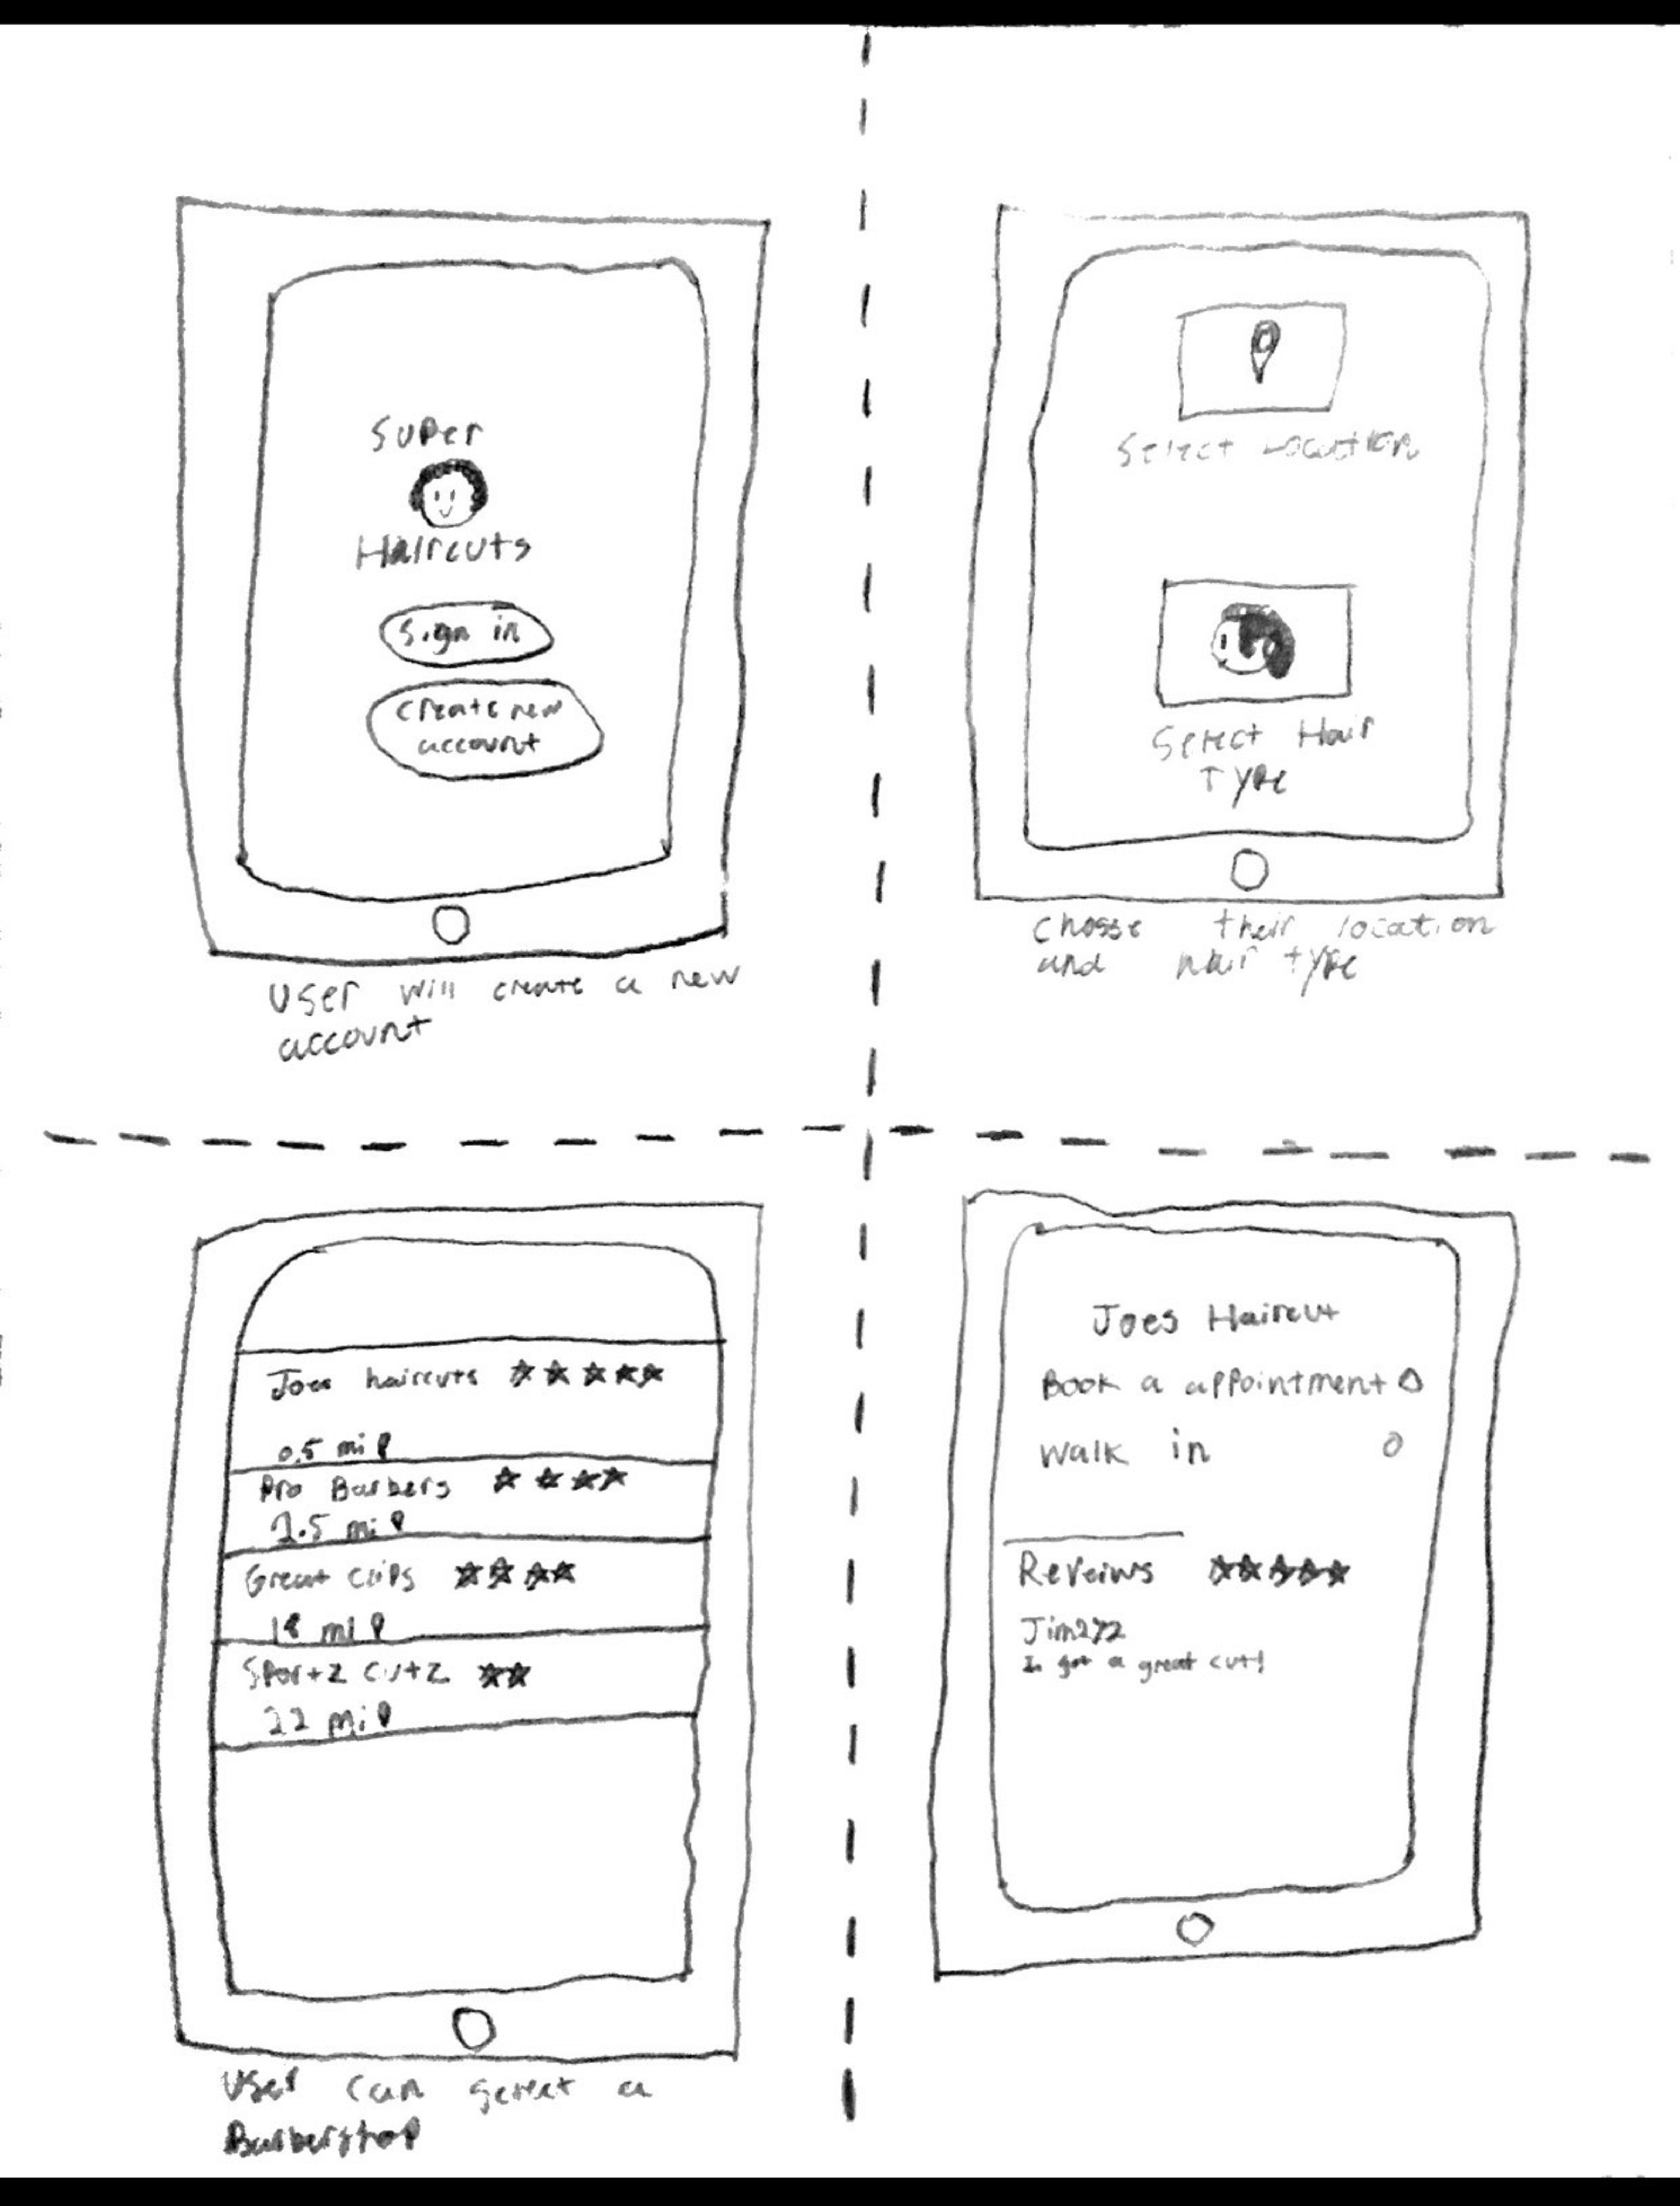 Super
Haircuts
Sign in
Create new
account
User will create a new
account
Select Location
Select Hair
Type
chosse their location
and hair type
Joes haircuts ★★★★★
0.5 mi
Pro Barbers ★★★★
2.5 mi
Great clips ★★★★
18 mi
Sportz cutz ★★
22 mi
User can select a
Barbershop
Joes Haircut
Book a appointment
Walk in
Reveiws ★★★★★
got a great cut!